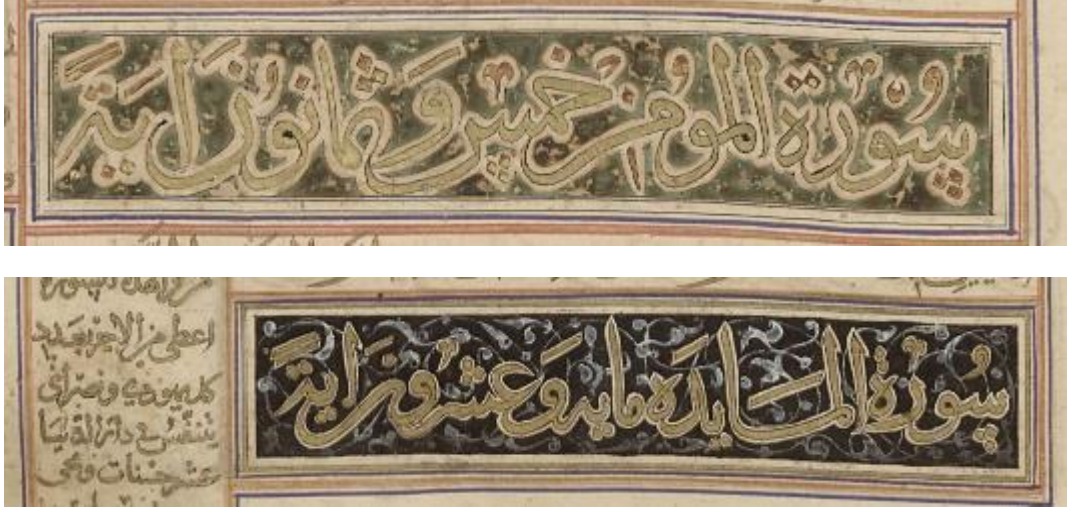 سورة المومن خمس وثمانون اية
سورة المايده مايه وعشرون اية
اعطى من الاجر بعدد
كل يهودي ونصراني
يتنفس في دار الدنيا
عشر حسنات ومحى